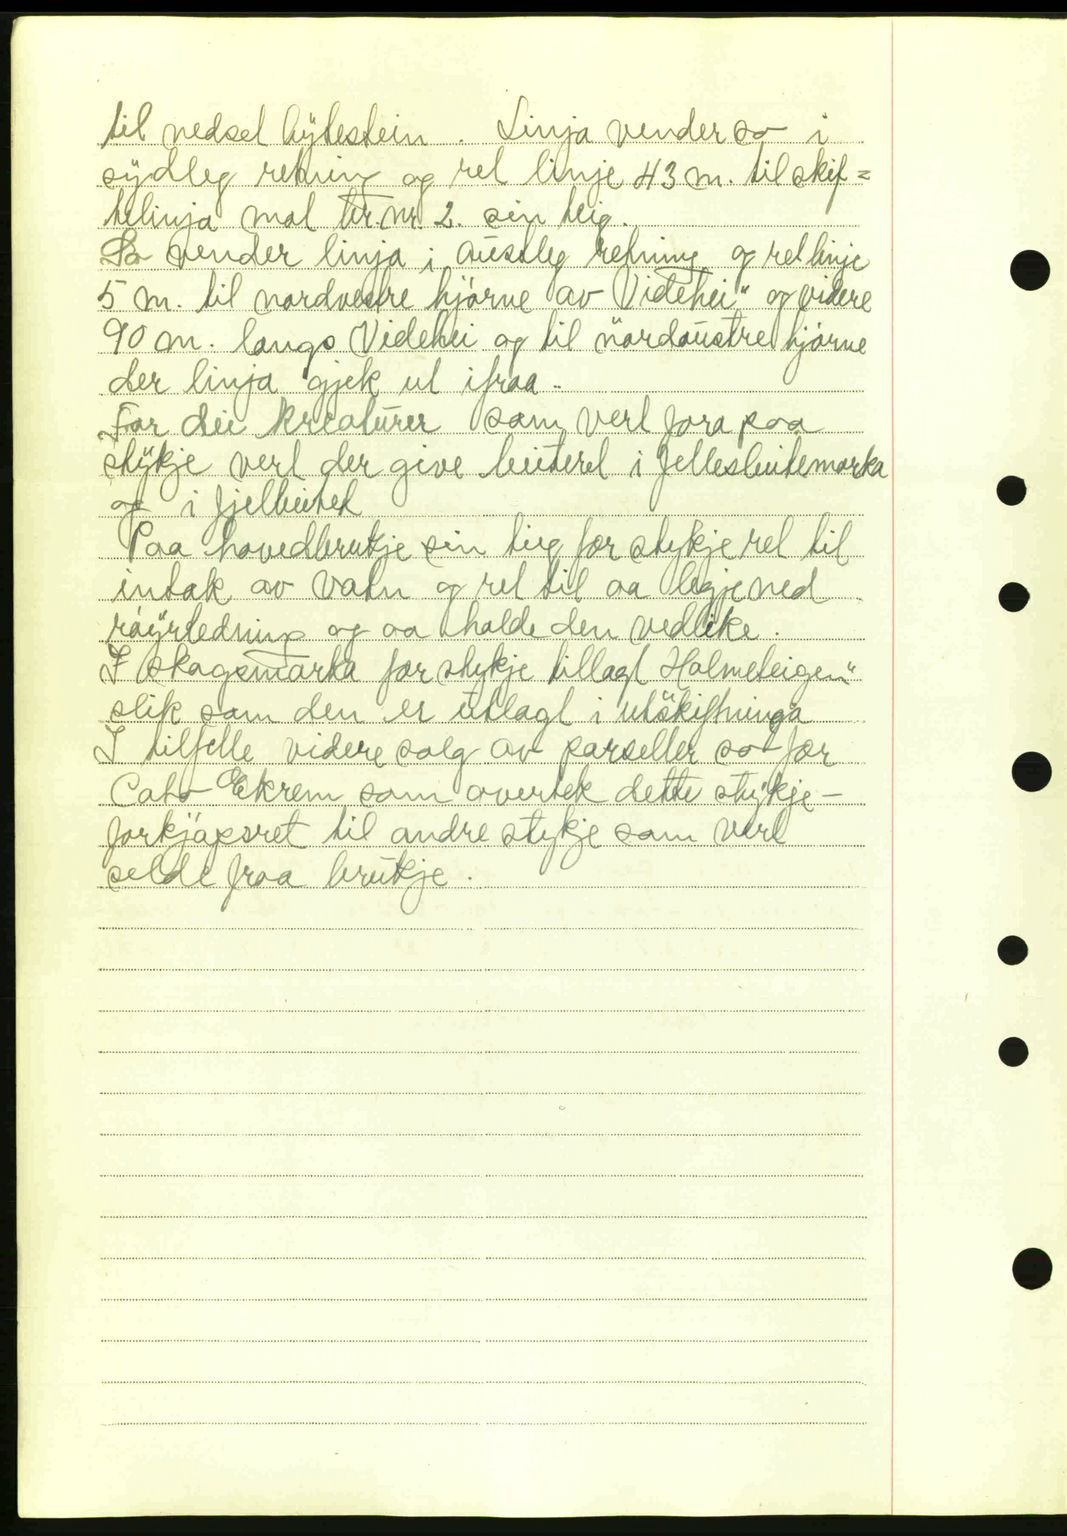 til nedset býtestein. Linja vender so i
sýdleg retning og ret linje 43 m. til skif=
telinja mot br. nr. 2. sin teig.
So vender linja i austleg retning og ret linje
5 m. til nordvestre hjórne av Videhei" og videre
90 m. langs Videhei og til nordaustre hjórne
der linja gjek ut ifraa -
For dei kreaturer som vert fora paa
stýkje vert der give beiteret i Fellesbeitemarka
og i fjelbeitet
Paa hovedbrukje sin teig fær stykje ret til
intak av vatn og ret til aa legje ned
róýrledning og aa halde den vedlike.
I skogsmarka fær stykje tillagt Holmeteigen"
slik som den er utlagt i utskiftninga
I tilfelle videre salg av parseller so fær
Cato Ekrem som overtek dette stýkje -
forkjópsret til andre stykje som vert
selde fraa brukje.